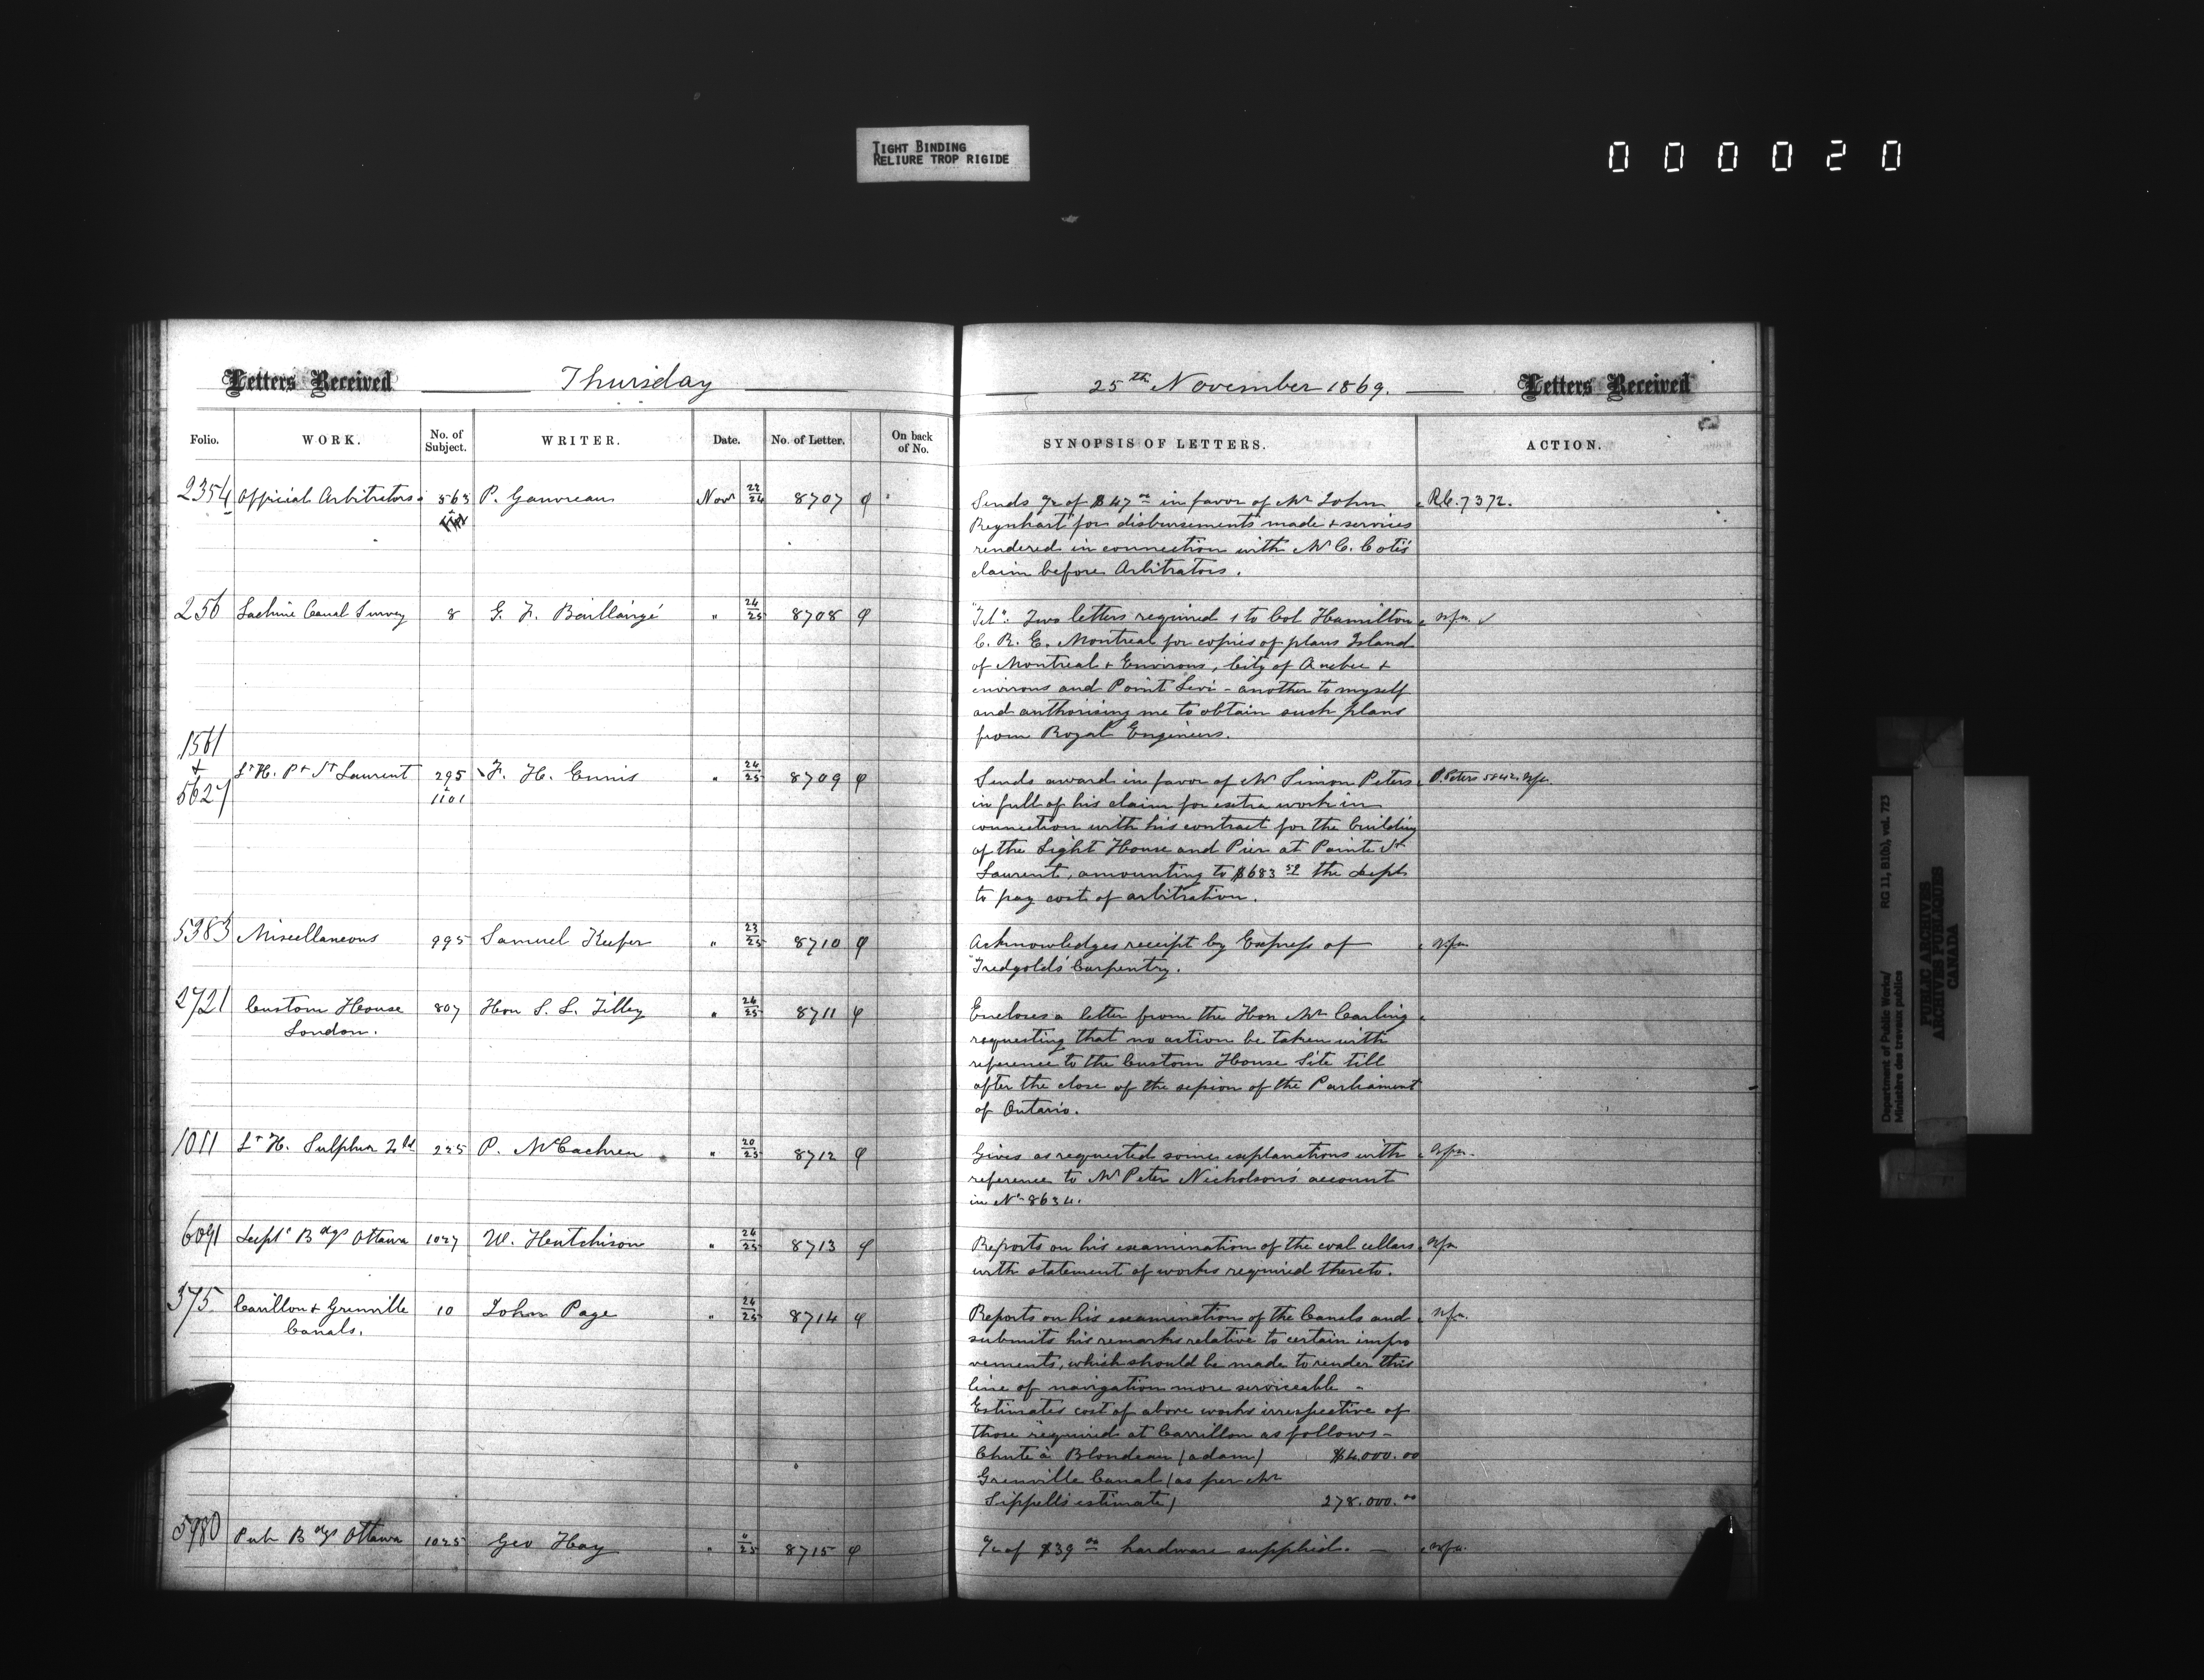 TIGHT BINDING
RELIURE TROP RIGIDE
000020
Letters Received
Thursday
25th November 1869.
Letters Received
Folio.
WORK.
No. of Subject.
WRITER.
Date.
No. of Letter.
On back of No.
SYNOPSIS OF LETTERS.
ACTION.
2354 Official Arbitrators 563 P. Gauvreau Novr 22/24 8707
Sends a/c of $47 00 in favor of Mr John R.C. 7372.
Reynhart for disbursements made & services
rendered in connection with Mr C. Coté's
claim before Arbitrators.
256 Lachine Canal Survey 8 G. F. Baillairgé " 24/25 8708
"Tel": Two letters required 1 to Col Hamilton Nfa.
C. R. E. Montreal for copies of plans Island
of Montreal & Environs, City of Quebec &
environs and Point Levi - another to myself
and authorising me to obtain such plans
from Royal Engineers.
1561 & 5627 Lt H. Pt St Laurent 295 & 1101 F. H. Ennis " 24/25 8709
Sends award in favor of Mr Simon Peters P. Peters 5842 Nfa.
in full of his claim for extra work in
connection with his contract for the building
of the Light House and Pier at Pointe St
Laurent, amounting to $683 52 the Dept
to pay cost of arbitration.
5383 Miscellaneous 995 Samuel Keefer " 23/25 8710
Acknowledges receipt by Express of Nfa
"Tredgold's Carpentry.
2721 Custom House 807 Hon S. L. Tilley " 24/25 8711
London.
Encloses a letter from the Hon Mr Carling
requesting that no action be taken with
reference to the Custom House Site till
after the close of the session of the Parliament
of Ontario.
1011 Lt H. Sulphur Isld 225 P. McEachren " 20/25 8712
Gives as requested some explanations with Nfa.
reference to Mr Peter Nicholson's account
in No 8634.
6091 Deptl Bdgs Ottawa 1027 W. Hutchison " 24/25 8713
Reports on his examination of the coal cellars Nfa
with statement of works required thereto.
375 Carillon & Grenville 10 John Page " 24/25 8714
Canals.
Reports on his examination of the Canals and Nfa.
submits his remarks relative to certain impro
vements, which should be made to render this
line of navigation more serviceable -
Estimates cost of above works irrespective of
those required at Carrillon as follows -
Chute à Blondeau (a dam) $4.000.00
Grenville Canal (as per Mr
Sippell's estimate) 278.000.00
5980 Pub Bdgs Ottawa 1025 Geo Hay " "/25 8715
a/c of $39 00 hardware supplied. - Nfa.
Department of Public Works/
Ministère des travaux publics
RG 11, B1(b), vol. 723
PUBLIC ARCHIVES
ARCHIVES PUBLIQUES
CANADA